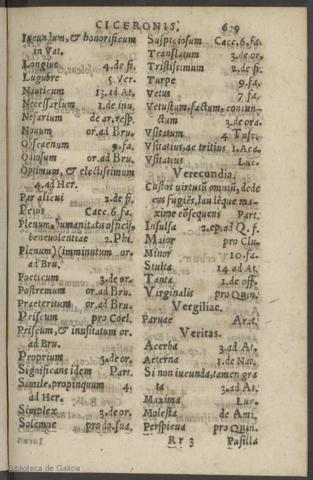 CICERONIS. 679
Iucundum, & honorificum
in Vat.
Longius 4. de fi.
Lugubre 5. Ver.
Nauticum 13. ad At.
Necessarium 1. de inu.
Nefarium de ar. resp.
Nouum or. ad Bru.
Obscaenum 9. fa.
Otiosum or. ad Bru.
Optimum, & electissimum
4. ad Her.
Par alicui 2. de fi.
Peius Caec. 6. fa.
Plenum humanitatis officij,
beneuolentiae 2. Phi.
Plenum) imminutum or.
ad Bru.
Poeticum 3. de or.
Postremum or. ad Bru.
Praeteritum or. ad Bru.
Priscum pro Coel.
Priscum, & inusitatum or.
ad Bru.
Proprium 3. de or.
Significans idem Part.
Simile, propinquum 4.
ad Her.
Simplex 3. de or.
Solemne pro do. sua.
Suspitiosum Caec. 6. fa.
Translatum 3. de or.
Tristissimum 2. de fi.
Turpe 9. fa.
Vetus 7. fa.
Vetustum, factum, coniun-
ctum 3. de ora.
Vsitatum 4. Tusc.
Vsitatius, ac tritius 1. Aca.
Vsitatius Luc.
Verecundia.
Custos virtutũ omniũ, dede
cus fugiẽs, laudẽque ma-
xime cõsequens Part.
Insulsa 2. ep. ad Q. f.
Maior pro Clu.
Minor 10. fa.
Stulta 14. ad At.
Tanta 1. de off.
Virginalis pro Quin.
Vergiliae.
Paruae Arat.
Veritas.
Acerba 3. ad At.
Aeterna 1. de Nat.
Si non iucunda, tamen gra
ta 3. ad At.
Maxima Luc.
Molesta de Ami.
Perspicua pro Quin.
Rr 3 Pusilla
Biblioteca de Galicia